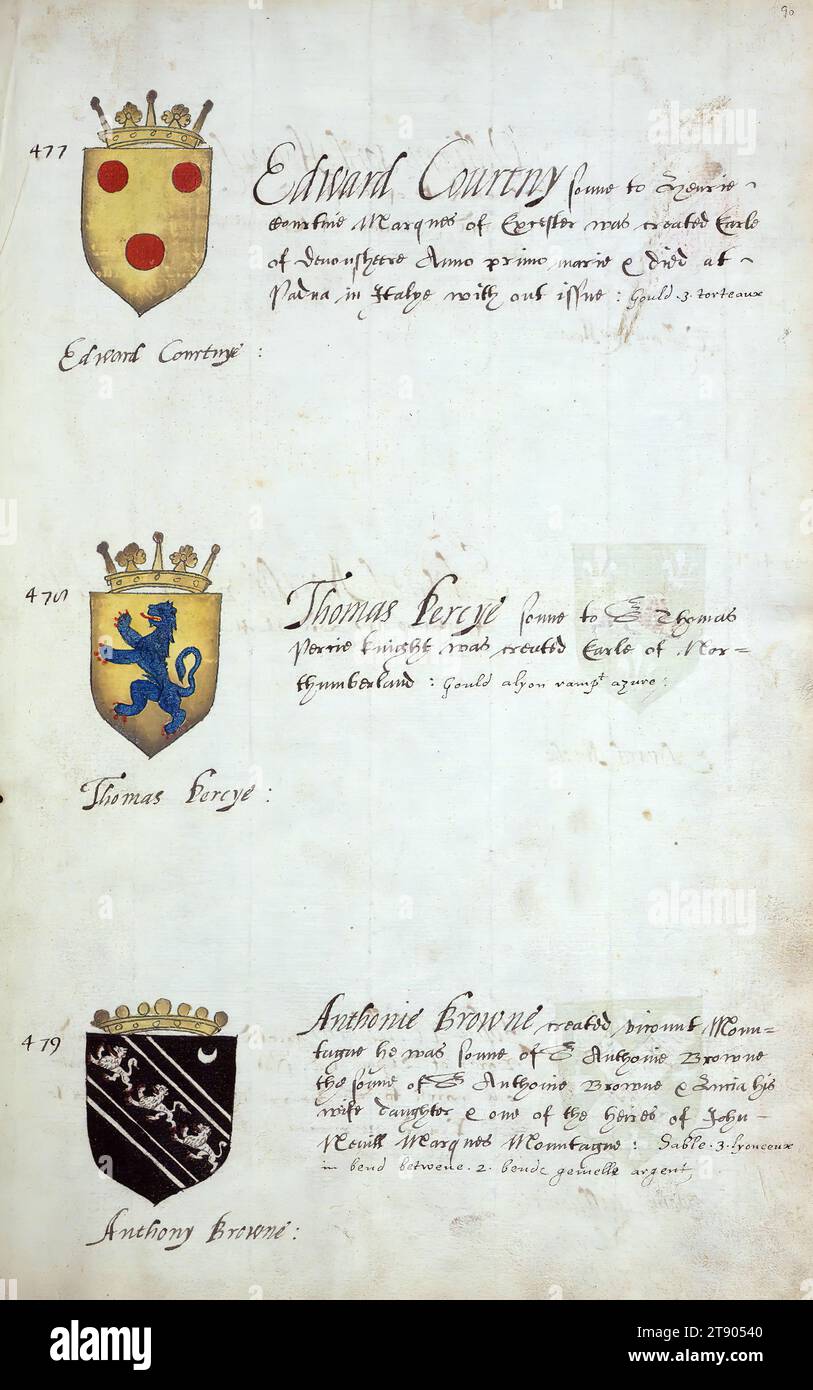 90
477
Edward Courtny sonne to Henrie
Courtnie Marques of Excester was created Earle
of Devonsheere Anno primo marie & died at
Padua in Italye with out issue : Gould . 3 . torteaux
Edward Courtnye :
478
Thomas Percye sonne to Sr Thomas
Percie knight was created Earle of Nor=
thumberland : Gould a lyon rampt azure :
Thomas Percye :
479
Anthonie Browne created vicount Moun=
tague he was sonne of Sr Anthonie Browne
the sonne of Sr Anthoine Browne & Lucia his
wife daughter & one of the heires of John
Nevill Marques Mountague : Sable . 3 . lyonceux
in bend betwene . 2 . bende gemelle argent
Anthony Browne :
alamy
alamy
alamy
Image ID: 2T90540
www.alamy.com